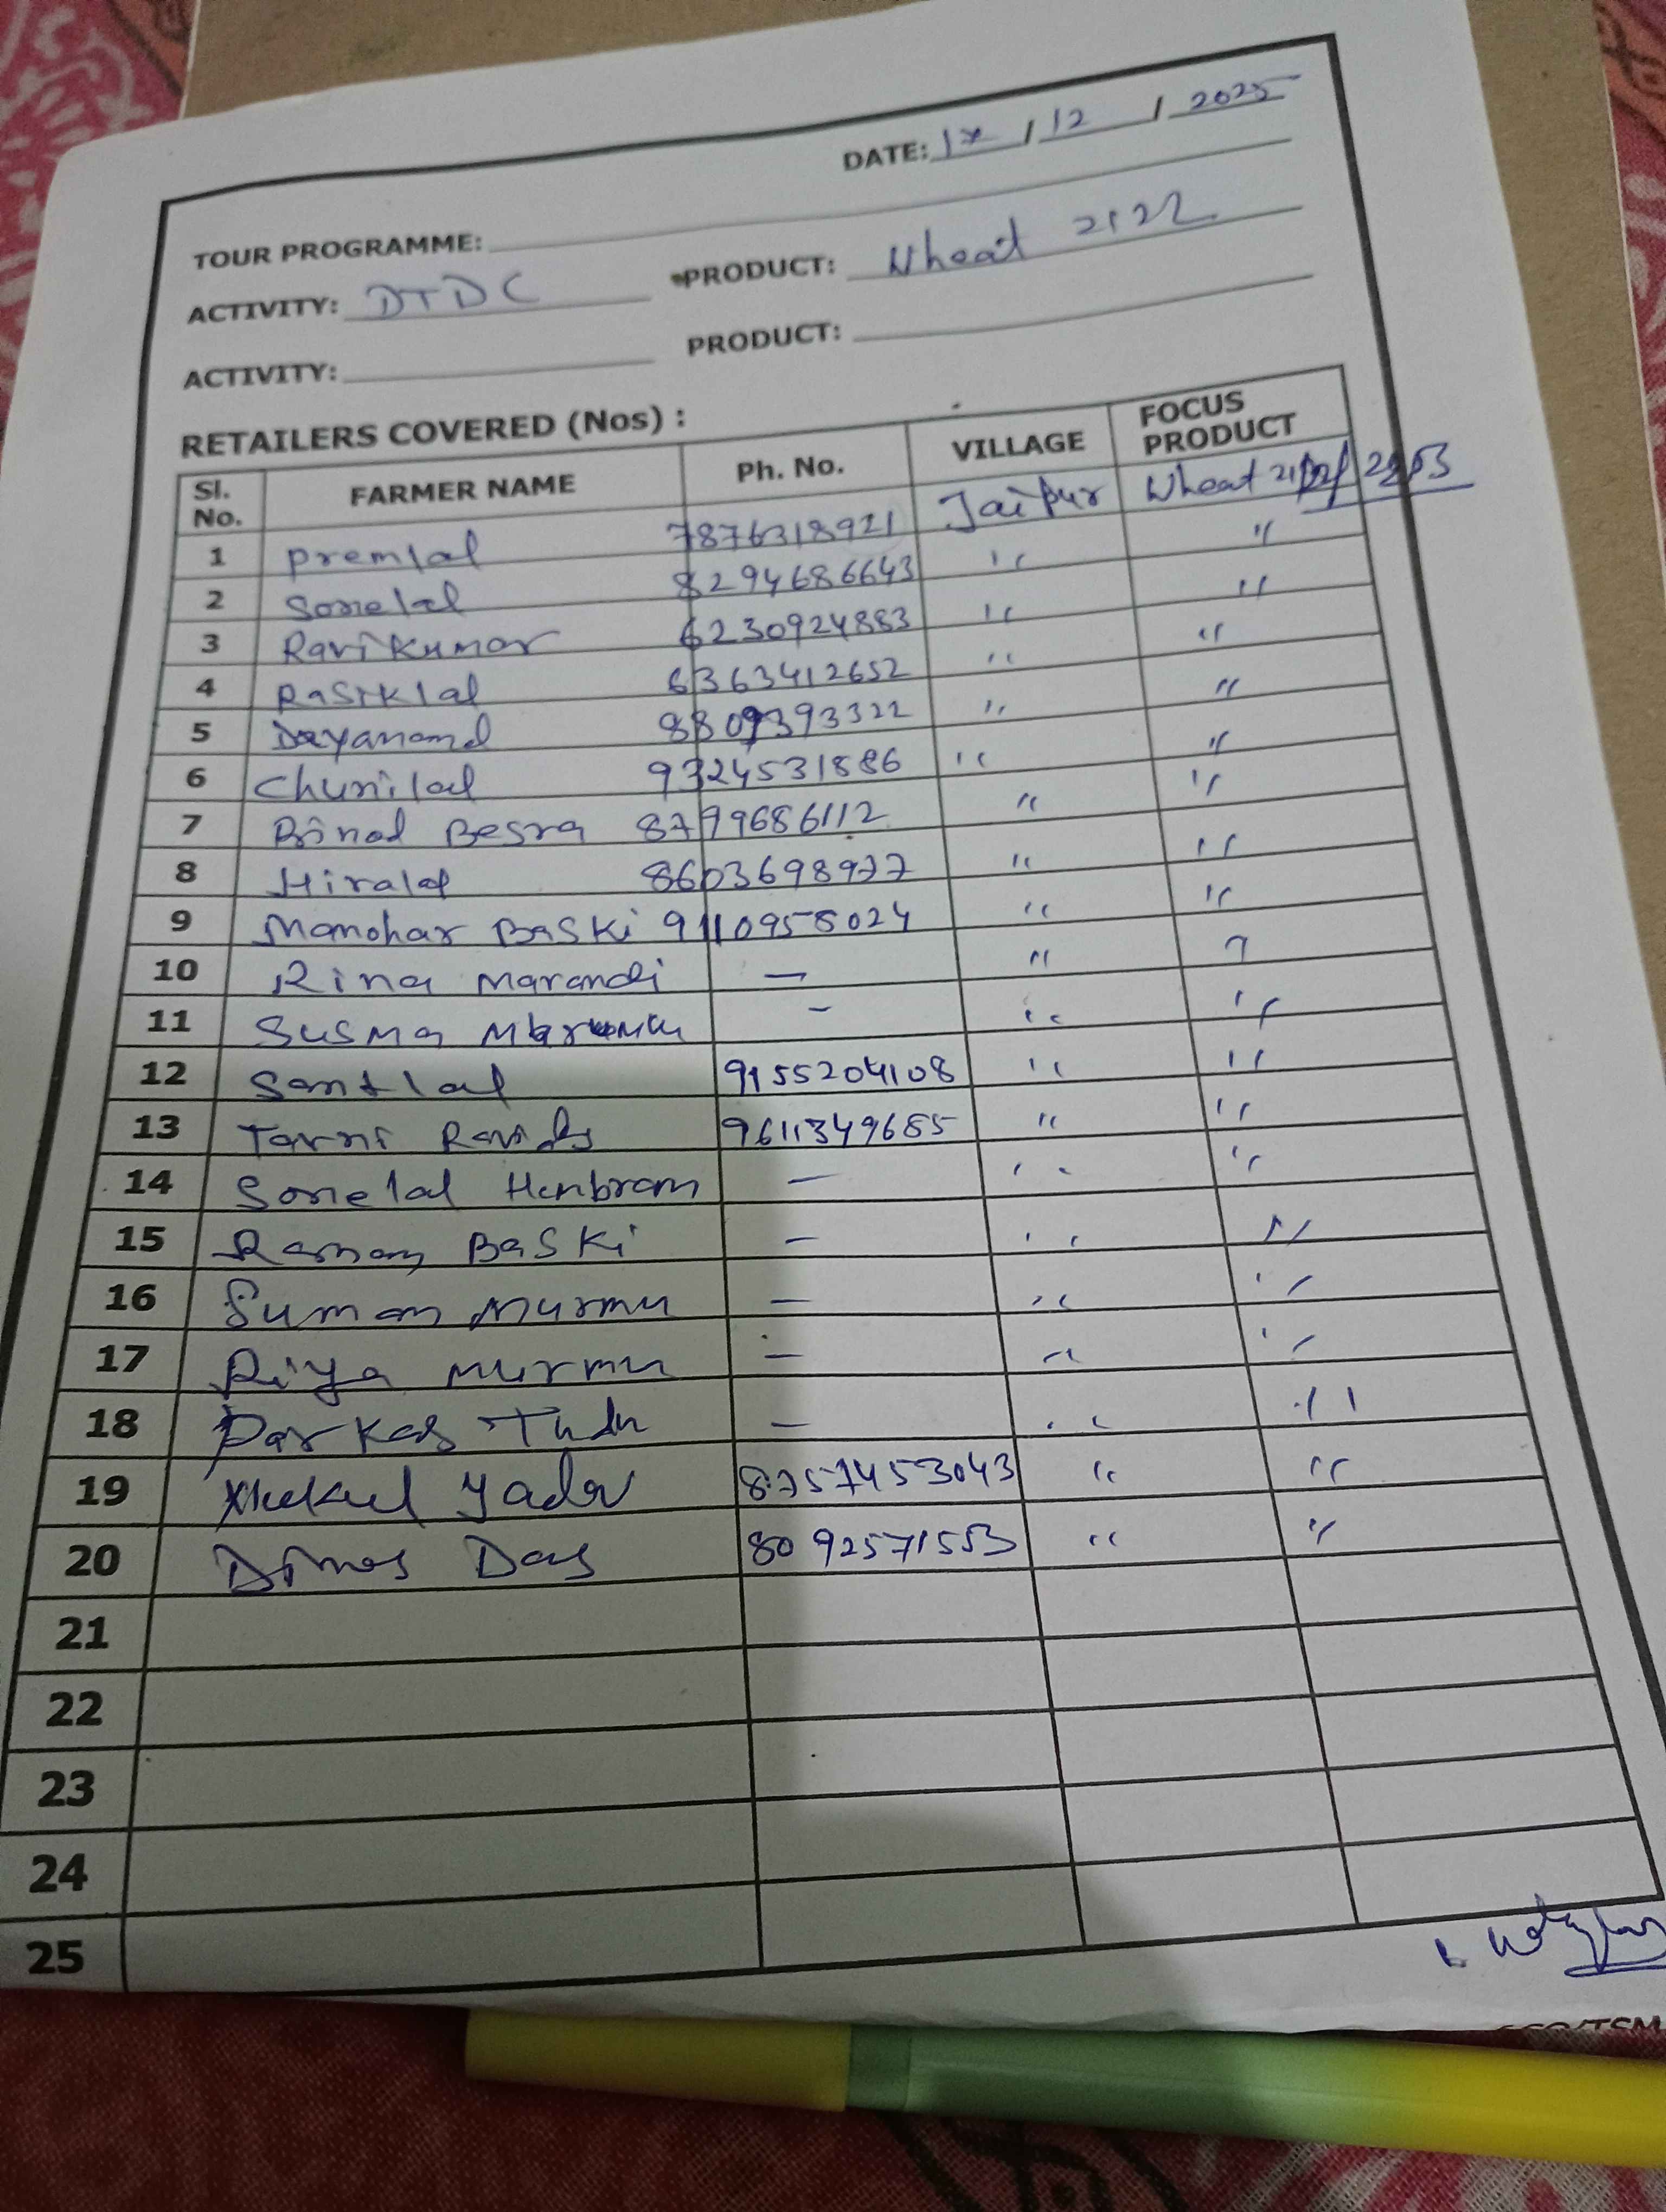 DATE: 17 / 12 / 2025
TOUR PROGRAMME:
ACTIVITY: DTDC PRODUCT: Wheat 2122
ACTIVITY: PRODUCT:
RETAILERS COVERED (Nos) :
Sl. No. FARMER NAME Ph. No. VILLAGE FOCUS PRODUCT
1 Premlal 7876318921 Jaipur Wheat
2 Sonelal 8294686643 " "
3 Ravi Kumar 6230924883 " "
4 Rasiklal 6363412652 " "
5 Dayanand 8809393322 " "
6 Chunilal 9324531886 " "
7 Binod Besra 8799686112 " "
8 Hiralal 8603698977 " "
9 Manohar Baski 9110958024 " "
10 Rina Marandi – " "
11 Susma – " "
12 Santlal 9155204108 " "
13 Tarni 9611349685 " "
14 Sonelal Hembram – " "
15 Raman Baski – " "
16 Suman Murmu – " "
17 Riya Murmu – " "
18 Parkas Tudu – " "
19 Yadav 8757453043 " "
20 Dines Das 8092571553 " "
21
22
23
24
25